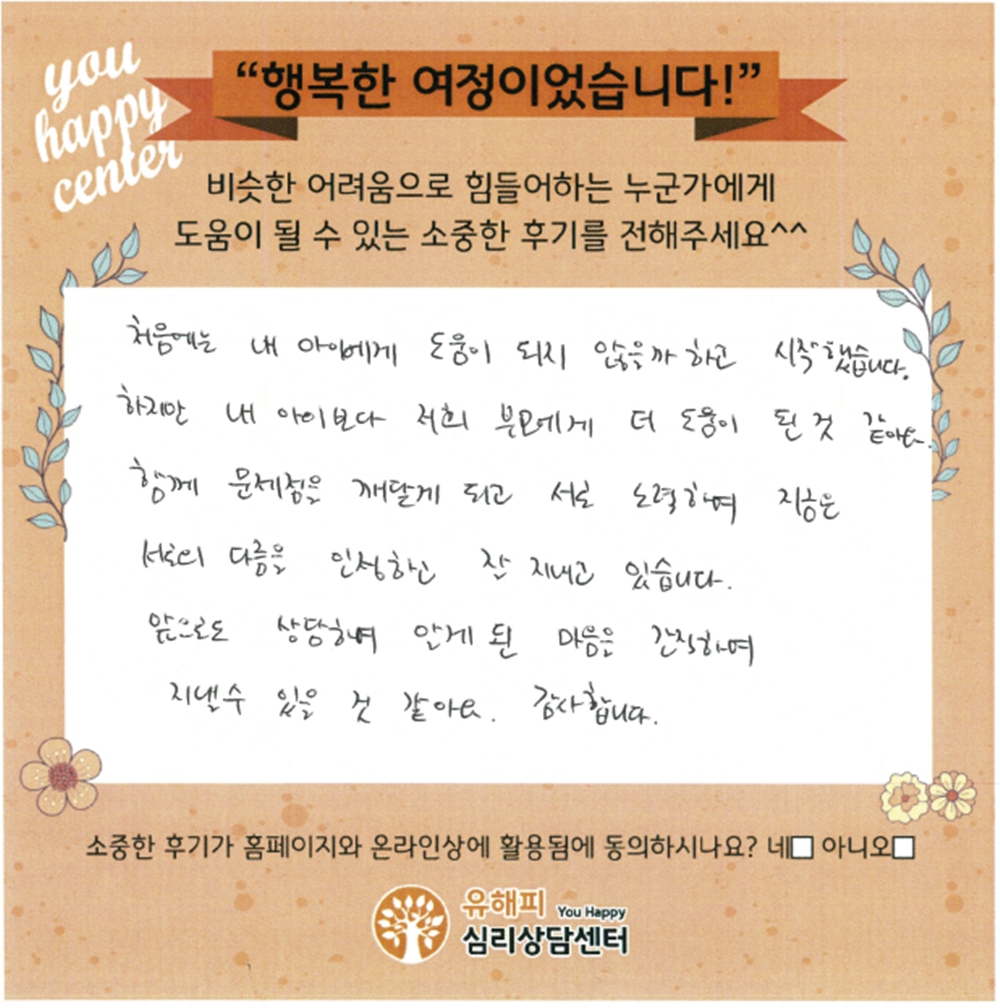 you
happy
center
“행복한 여정이었습니다!”
비슷한 어려움으로 힘들어하는 누군가에게
도움이 될 수 있는 소중한 후기를 전해주세요^^
처음에는 내 아이에게 도움이 되지 않을까 하고 시작했습니다.
하지만 내 아이보다 저희 부모에게 더 도움이 된 것 같아요.
함께 문제점을 깨닫게 되고 서로 노력하며 지금은
서로의 다름을 인정하고 잘 지내고 있습니다.
앞으로도 상담하며 알게 된 마음을 간직하며
지낼수 있을 것 같아요. 감사합니다.
소중한 후기가 홈페이지와 온라인상에 활용됨에 동의하시나요? 네□ 아니오□
유해피 You Happy
심리상담센터